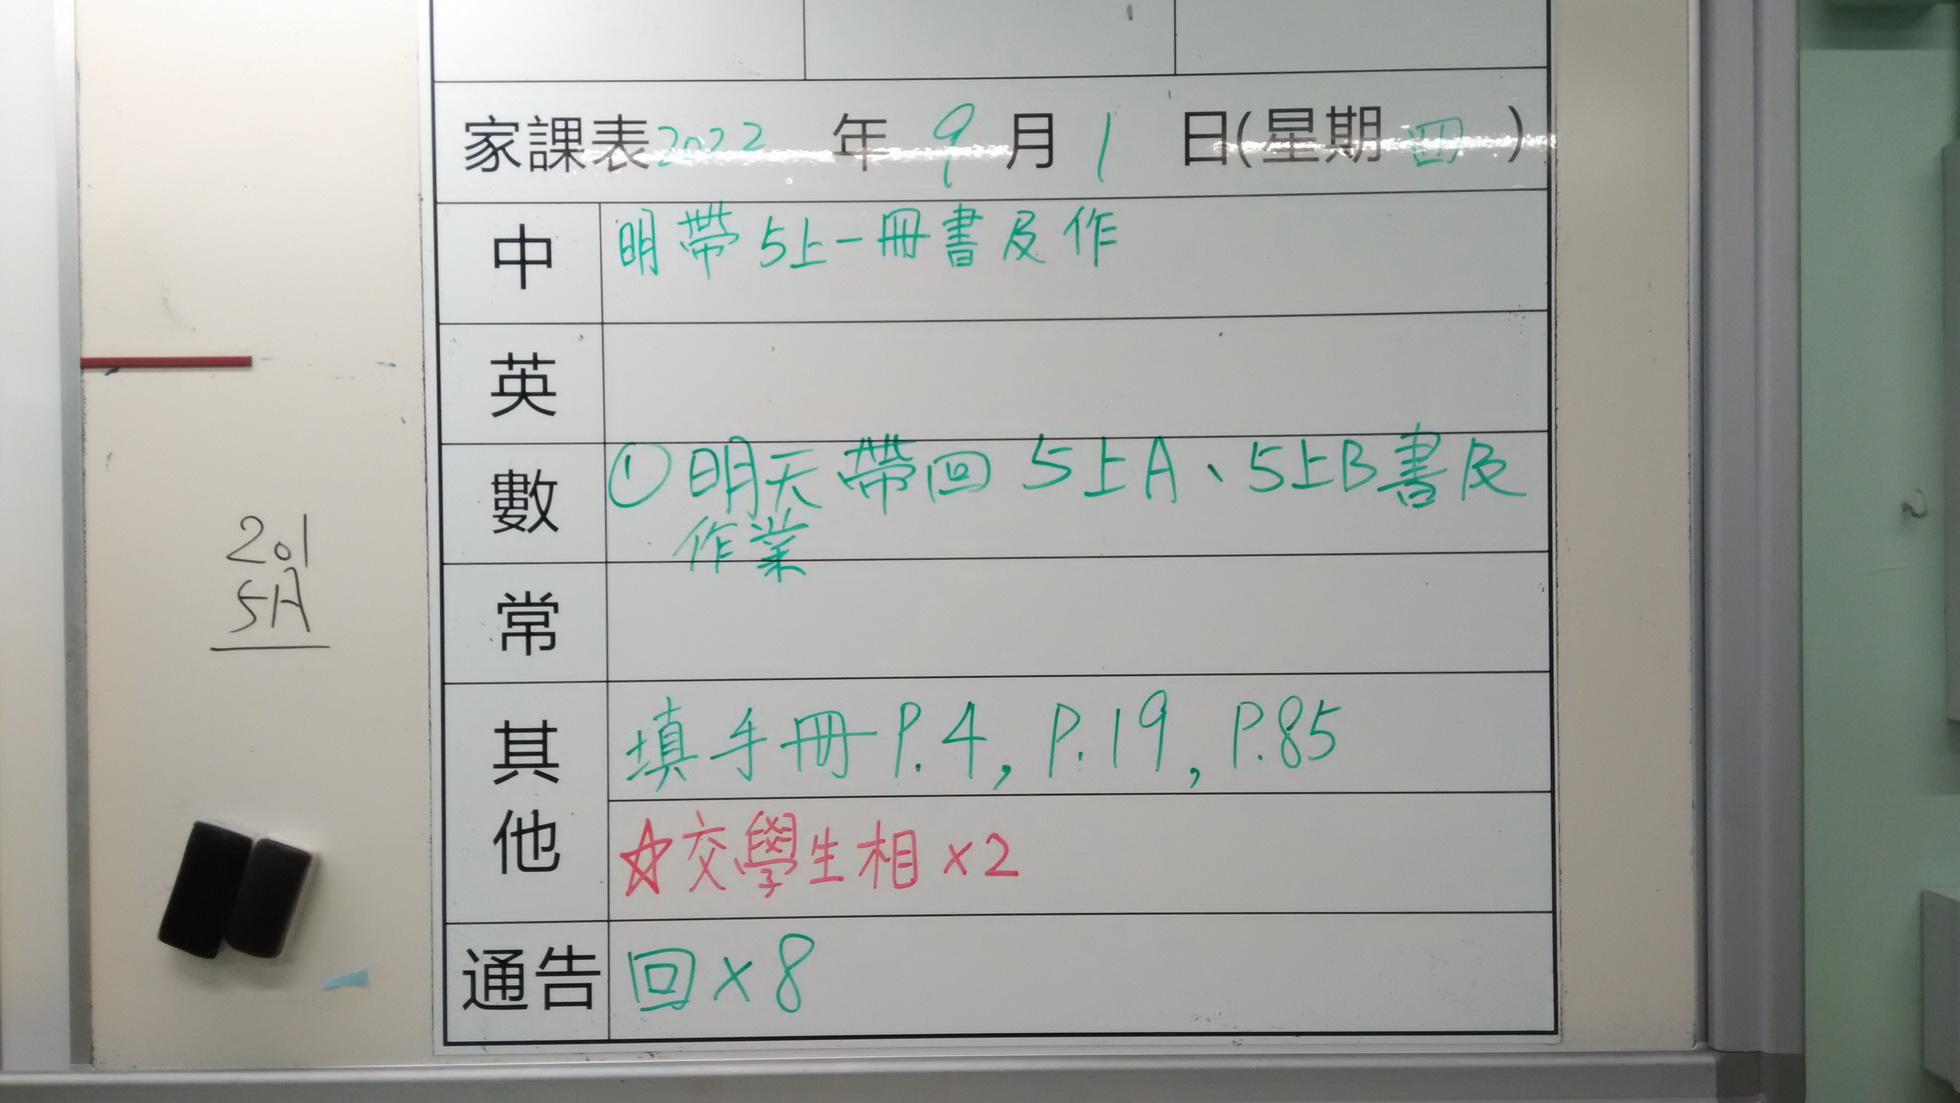 家課表2022年9月1日(星期四)
中 明帶5上一冊書及作
英
數 ①明天帶回5上A、5上B書及
作業
常
其他 填手冊P.4, P.19, P.85
☆交學生相×2
通告 回×8
201
5A